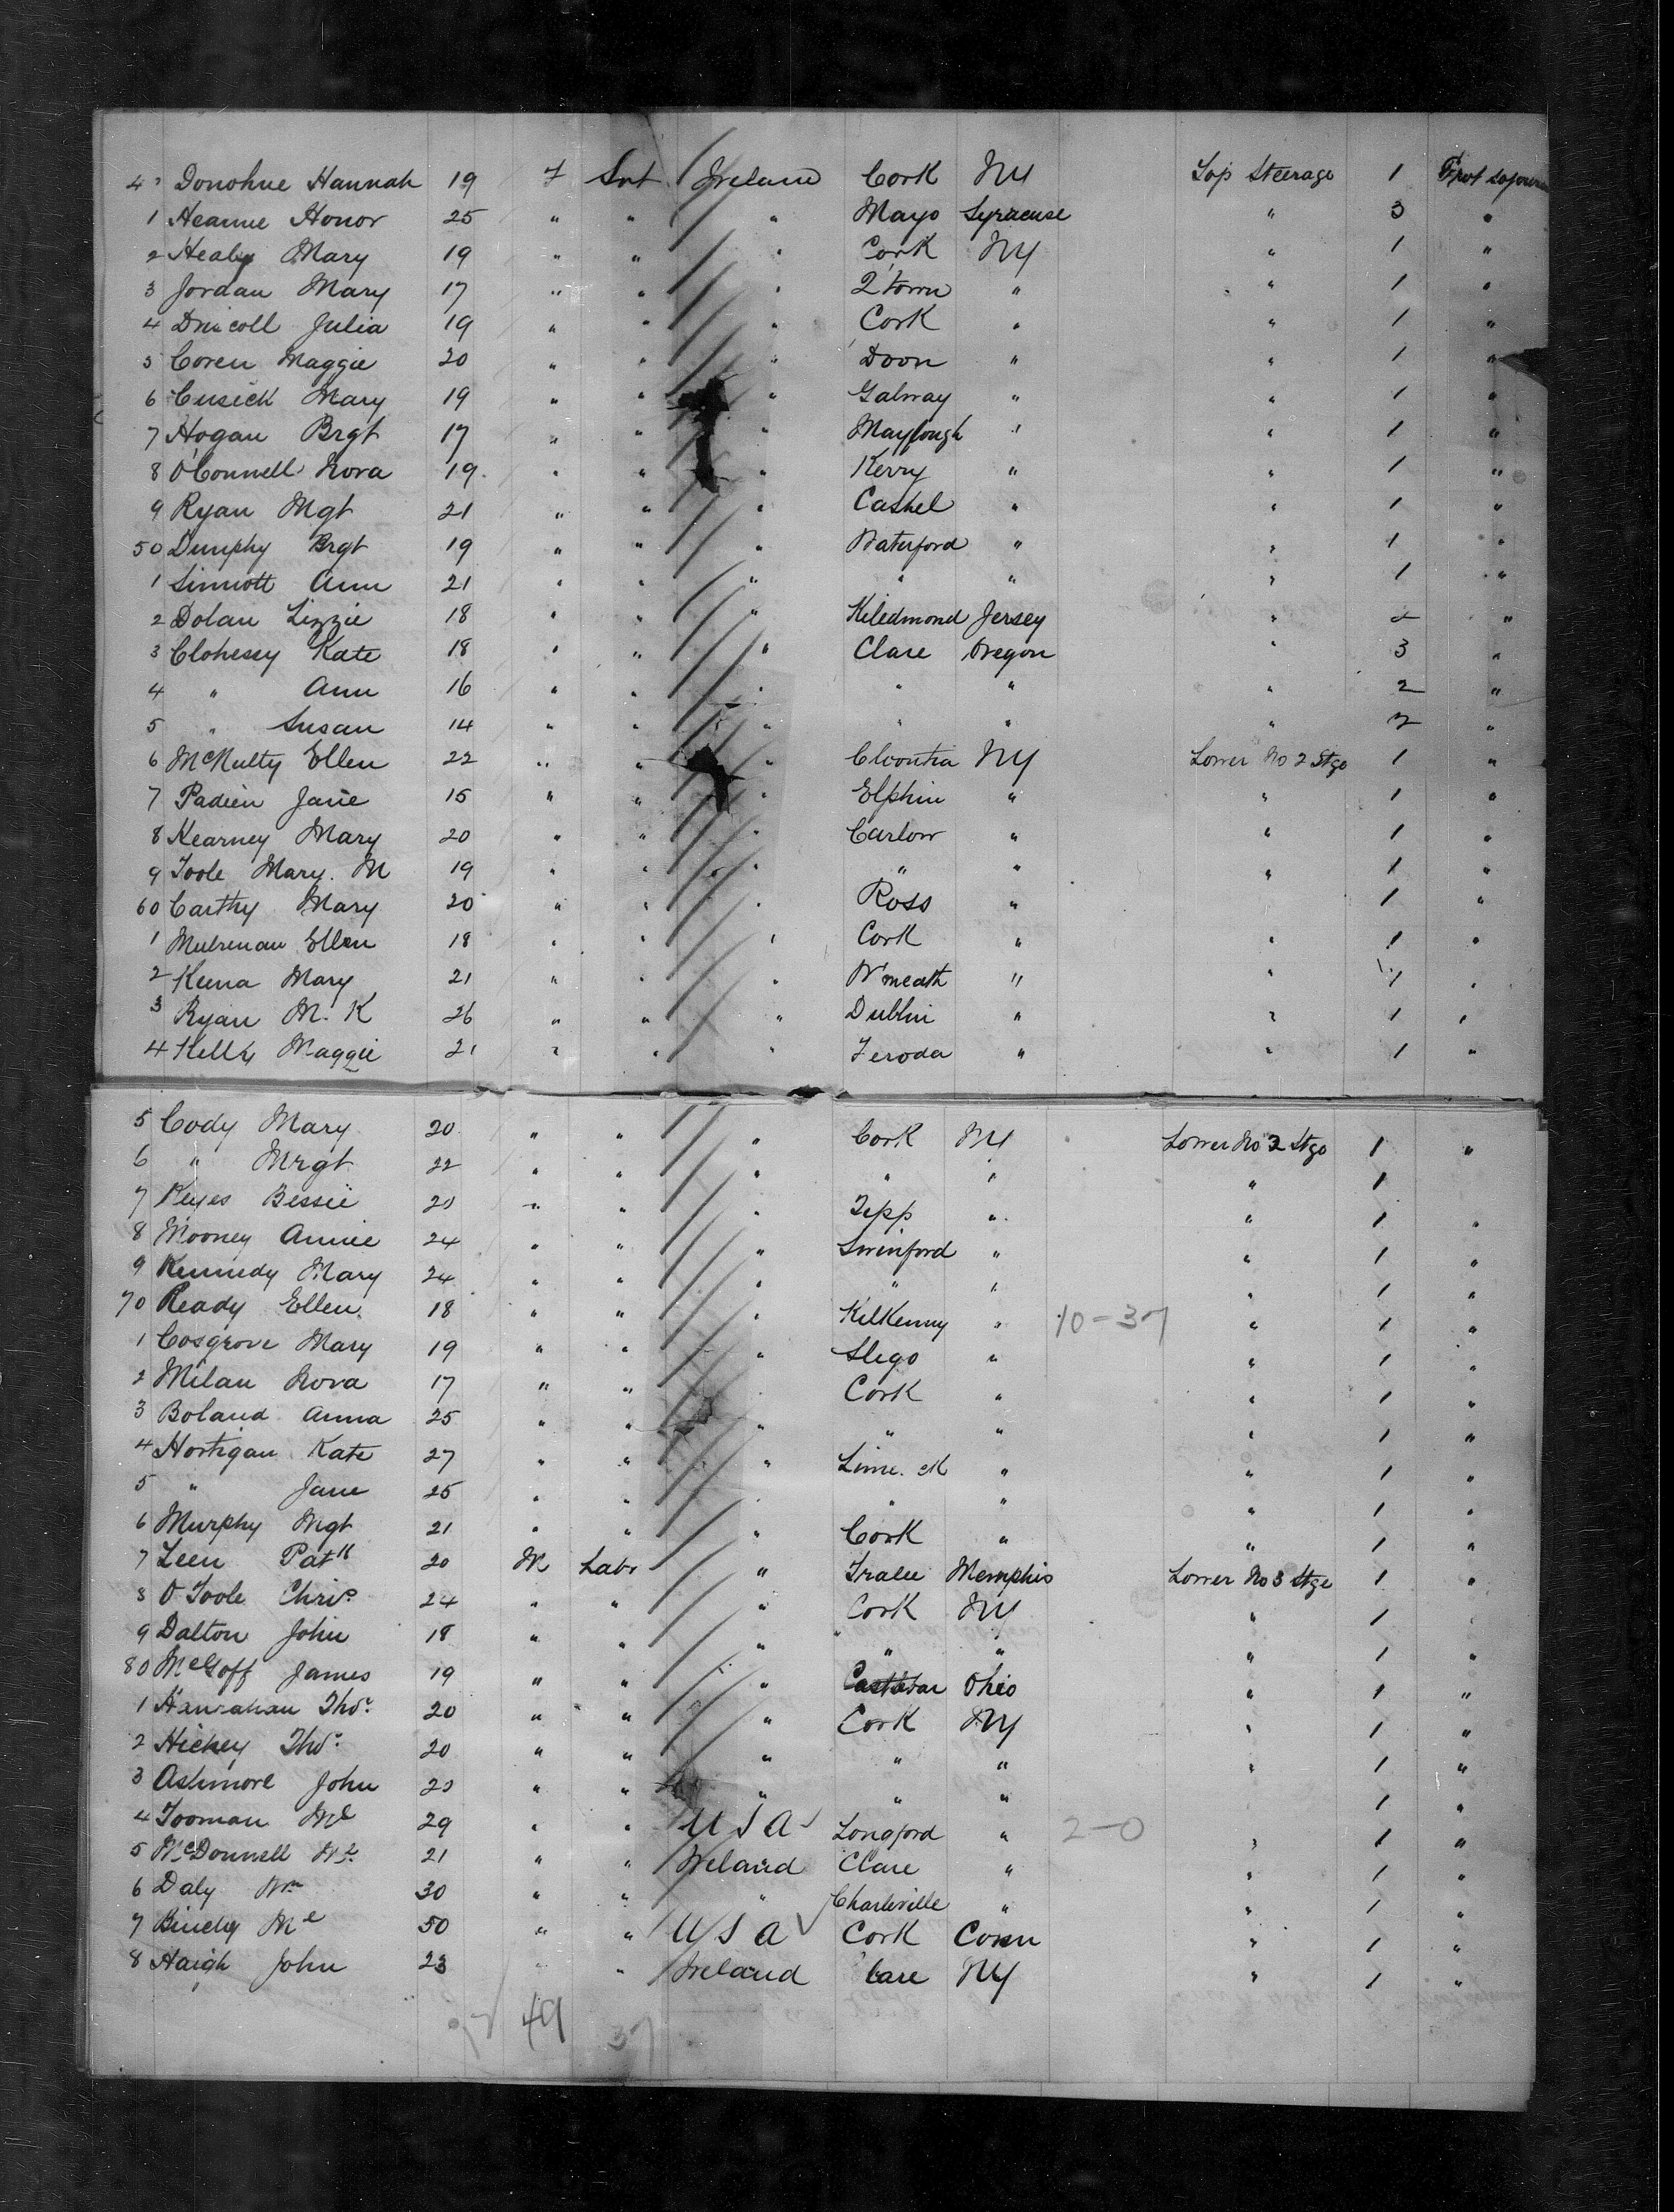 4 Donohue Hannah 19 F Svt Ireland Cork NY Top Steerage 1 Prot sojourn
1 Heanue Honor 25 " " " Mayo Syracuse " 3 "
2 Healy Mary 19 " " " Cork NY " 1 "
3 Jordan Mary 17 " " " Qtown " " 1 "
4 Driscoll Julia 19 " " " Cork " " 1 "
5 Coren Maggie 20 " " " Doon " " 1 "
6 Cusick Mary 19 " " " Galway " " 1 "
7 Hogan Brgt 17 " " " Maylough " " 1 "
8 O'Connell Nora 19 " " " Kerry " " 1 "
9 Ryan Mgt 21 " " " Cashel " " 1 "
50 Dunphy Brgt 19 " " " Waterford " " 1 "
1 Sinnott Ann 21 " " " " " " 1 "
2 Dolan Lizzie 18 " " " Kiledmond Jersey " 2 "
3 Clohesey Kate 18 " " " Clare Oregon " 3 "
4 " Ann 16 " " " " " " 2 "
5 " Susan 14 " " " " " " 2 "
6 McNulty Ellen 22 " " " Cloontia NY Lower No 2 Stge 1 "
7 Padien Jane 15 " " " Elphin " " 1 "
8 Kearney Mary 20 " " " Carlow " " 1 "
9 Toole Mary. M 19 " " " " " " 1 "
60 Carthy Mary 20 " " " Ross " 1 "
1 Mulrenan Ellen 18 " " " Cork " " 1 "
2 Keena Mary 21 " " " W'meath " " 1 "
3 Ryan M. K 26 " " " Dublin " " 1 "
4 Kelly Maggie 21 " " " Feroda " " 1 "
5 Cody Mary 20 " " " Cork NY Lower No 2 Stge 1 "
6 " Mrgt 22 " " " " " " 1
7 Keyes Bessie 20 " " " Tipp " " 1 "
8 Mooney Annie 24 " " " Swinford " " 1 "
9 Kennedy Mary 24 " " " " " " 1 "
70 Ready Ellen 18 " " " Kilkenny " 10-37 " 1 "
1 Cosgrove Mary 19 " " " Sligo " " 1 "
2 Milan Nora 17 " " " Cork " " 1 "
3 Boland Anna 25 " " " " " " 1 "
4 Hortigan Kate 27 " " " Lime.ck " " 1 "
5 " Jane 25 " " " " " " 1 "
6 Murphy Mgt 21 " " " Cork " " 1 "
7 Leen Patk 20 M Labr " Tralee Memphis Lower No 3 Stge 1 "
8 O Toole Chris 24 " " " Cork NY " 1 "
9 Dalton John 18 " " " " " " 1 "
80 McGoff James 19 " " " Castlebar Ohio " 1 "
1 Hanrahan Thos 20 " " " Cork NY " 1 "
2 Hickey Thos 20 " " " " " " 1 "
3 Ashmore John 20 " " " " " 1 "
4 Tooman Ml 29 " " U S A Longford " 2-0 " 1 "
5 McDonnell Ml 21 " " Ireland Clare " " 1 "
6 Daly Wm 30 " " " Charleville " " 1 "
7 Binchy Ml 50 " " U S A Cork Conn " 1 "
8 Haigh John 23 " " Ireland Care NY " 1 "
49 37